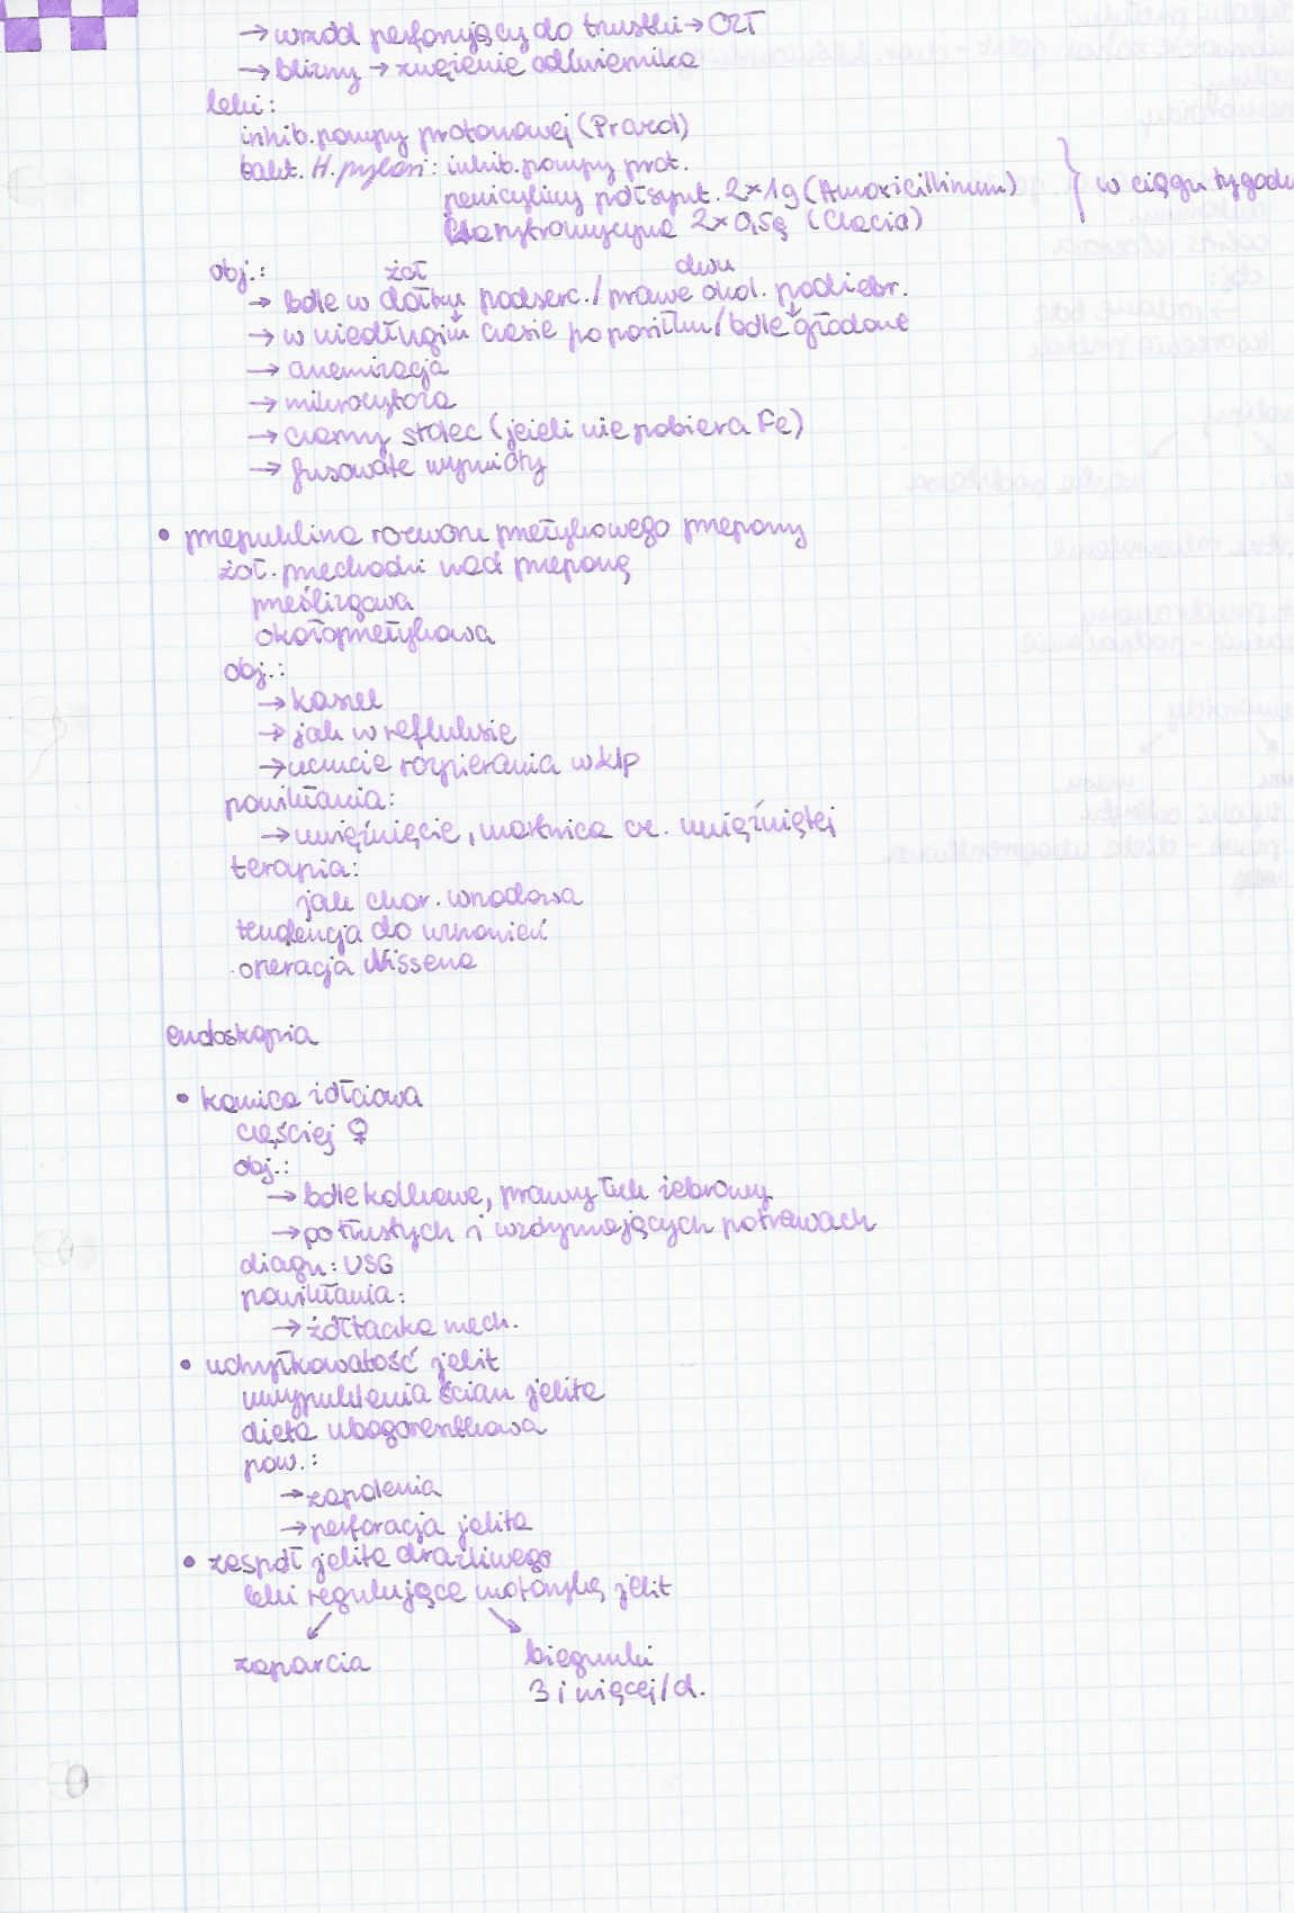 → wrzód perforujący do trzustki → OZT
→ blizny → zwężenie odźwiernika
leki:
inhib. pompy protonowej (Prazol)
bakt. H. pylori: inhib. pompy prot.
penicyliny półsynt. 2×1g (Amoxicillinum) } w ciągu tygodn
klarytromycynę 2×0,5g (Clacid)
obj.: żoł dwu
→ bóle w dołku podserc. / prawe okol. podżebr.
→ w niedługim czasie po posiłku / bóle głodowe
→ anemizacja
→ mikrocytoza
→ czarny stolec (jeżeli nie pobiera Fe)
→ fusowate wymioty
• przepuklina rozworu przełykowego przepony
żoł. przechodzi nad przeponę
prześlizgowa
okołoprzełykowa
obj.:
→ kaszel
→ jak w refluksie
→ uczucie rozpierania w klp
powikłania:
→ uwięźnięcie, martwica cz. uwięźniętej
terapia:
jak chor. wrzodowa
tendencja do wznowień
operacja Nissena
endoskopia
• kamica żółciowa
częściej ♀
obj.:
→ bóle kolkowe, prawy łuk żebrowy
→ po tłustych i wzdymających potrawach
diagn: USG
powikłania:
→ żółtaczka mech.
• uchyłkowatość jelit
uwypuklenia ścian jelita
dieta ubogoresztkowa
pow.:
→ zapalenia
→ perforacja jelita
• zespół jelita drażliwego
leki regulujące motorykę jelit
↙ ↘
zaparcia biegunki
3 i więcej/d.